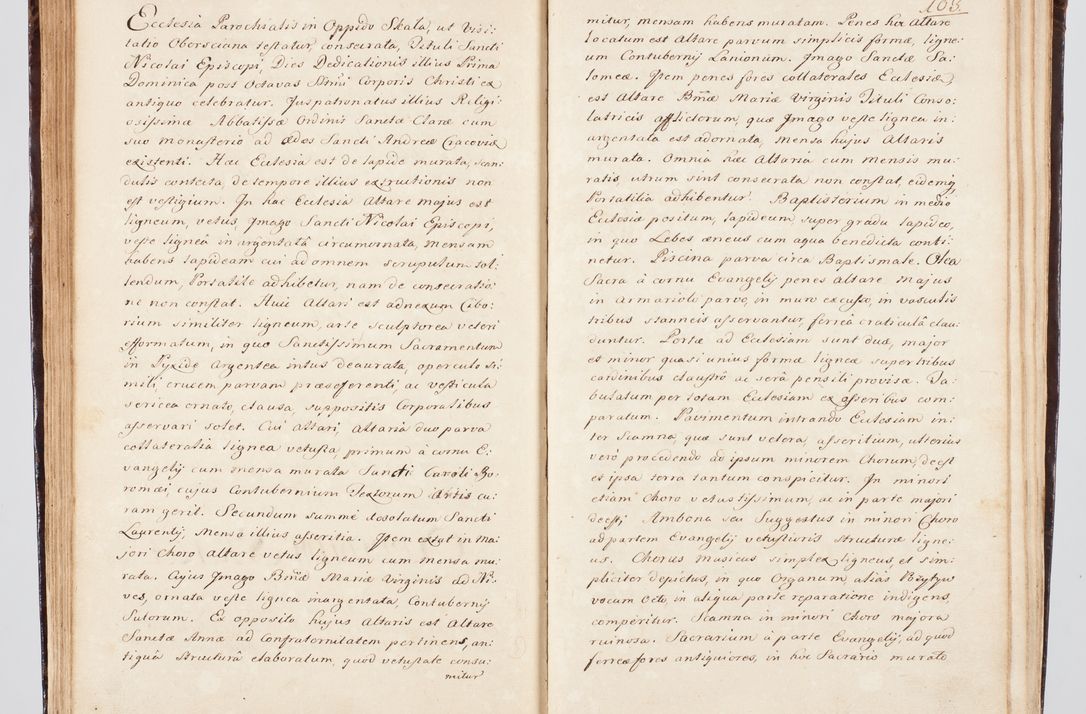 Ecclesia Parochialis in Oppido Skala, ut Visi:
tatio Obersciana testatur, consecrata, Tituli Sancti
Nicolai Episcopi, Dies Dedicationis illius Prima
Dominica post Octavas Ssmi Corporis Christi ex
antiquo celebratur. Juspatronatus illius Religi:
osissimæ Abbatissæ Ordinis Sanctæ Claræ cum
suo monasterio ad ædes Sancti Andreæ Cracoviæ
existenti. Hæc Ecclesia est de lapide murata, scan:
dulis contecta, de tempore illius exstructionis non
est vestigium. In hac Ecclesia Altare majus est
ligneum, vetus, Imago Sancti Nicolai Episcopi,
veste ligneâ inargentatâ circumornata, mensam
habens lapideam cui ad omnem scrupulum tol:
lendum, Portatile adhibetur, nam de consecratio:
ne non constat. Huic Altari est adnexum Cibo:
rium similiter ligneum, arte sculptorea veteri
efformatum, in quo Sanctissimum Sacramentum
in Pyxide argentea intus deaurata, operculo si:
mili crucem parvam præseferenti, ac vesticula
sericea ornato, clausa, suppositis Corporalibus
asservari solet. Cui Altari, Altaria duo parva
collateralia lignea vetusta, primum à cornu E:
vangelij cum mensa murata Sancti Caroli Bo:
romæi, cujus Contubernium Textorum Artis cu:
ram gerit. Secundum summè desolatum Sancti
Laurentij, Mensa illius asseritia. Item extat in ma:
jori Choro Altare vetus ligneum cum mensa mu:
rata. Cujus Imago Bmæ Mariæ Virginis ad Ni:
ves, ornata veste lignea inargentata, Contubernij
Sutorum. Ex opposito hujus Altaris est Altare
Sanctæ Annæ ad Confraternitatem pertinens, an:
tiquâ structurâ elaboratum, quod vetustate consu:
mitur
103.
mitur, mensam habens muratam. Penes hoc Altare
locatum est Altare parvum simplicis formæ, ligne:
um Contubernij Lanionum. Imago Sanctæ Sa:
lomeæ. Item penes fores collaterales Ecclesiæ
est Altare Bmæ Mariæ Virginis Tituli Conso:
latricis afflictorum, quæ Imago veste lignea in:
argentata est adornata, mensa hujus Altaris
murata. Omnia hæc Altaria cum mensis mu:
ratis, utrum sint consecrata non constat, eidemq
Portatilia adhibentur. Baptisterium in medio
Ecclesiæ positum, lapideum, super gradu lapideo,
in quo Lebes æreus cum aqua benedicta conti:
netur. Piscina parva circa Baptismale. Olea
Sacra à cornu Evangelij penes Altare Majus
in Armariolo parvo, in muro excusso, in vasculis
tribus stanneis asservantur, ferreâ craticulâ clau:
duntur. Portæ ad Ecclesiam sunt duæ, major
et minor quasi unius formæ ligneæ super tribus
cardinibus claustrô ac serâ pensili provisæ. Ta:
bulatum per totam Ecclesiam ex asseribus com:
paratum. Pavimentum intrando Ecclesiam in:
ter scamna, quæ sunt vetera, asseritium, ulterius
verò procedendo ad ipsum minorem Chorum, deest
et ipsa terra tantum conspicitur. In minori
etiam Choro vetustissimum, ac in parte majori
deest. Ambona seu Suggestus in minori Choro
ad partem Evangelij vetustioris structuræ ligne:
us. Chorus Musicus simplex ligneus, et sim:
pliciter depictus, in quo Organum, aliàs
vocum Octo, in aliqua parte reparatione indigens,
comperitur. Scamna in minori Choro majora
ruinosa. Sacrarium à parte Evangelij, ad quod
ferreæ fores antiquiores, in hoc Sacrario murato